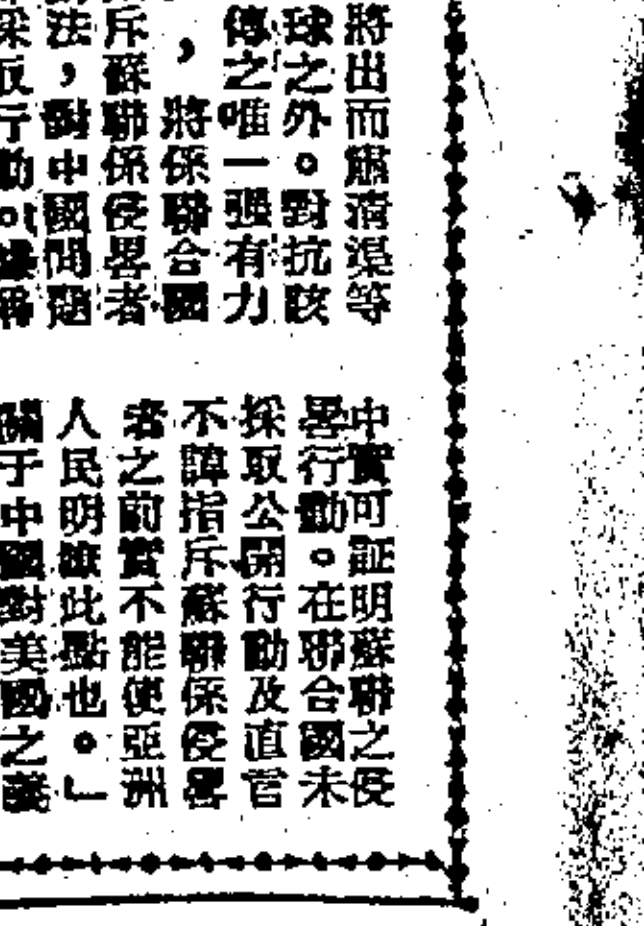 將出而肅清渠等
球之外。對抗該
傳之唯一强有力
，將係聯合國
斥蘇聯係侵畧者
法，對中國問題
採取行動。
中實可証明蘇聯之侵
畧行動。在聯合國未
採取公開行動及直言
不諱指斥蘇聯係侵畧
者之前實不能使亞洲
人民明瞭此點也。」
關于中國對美國之